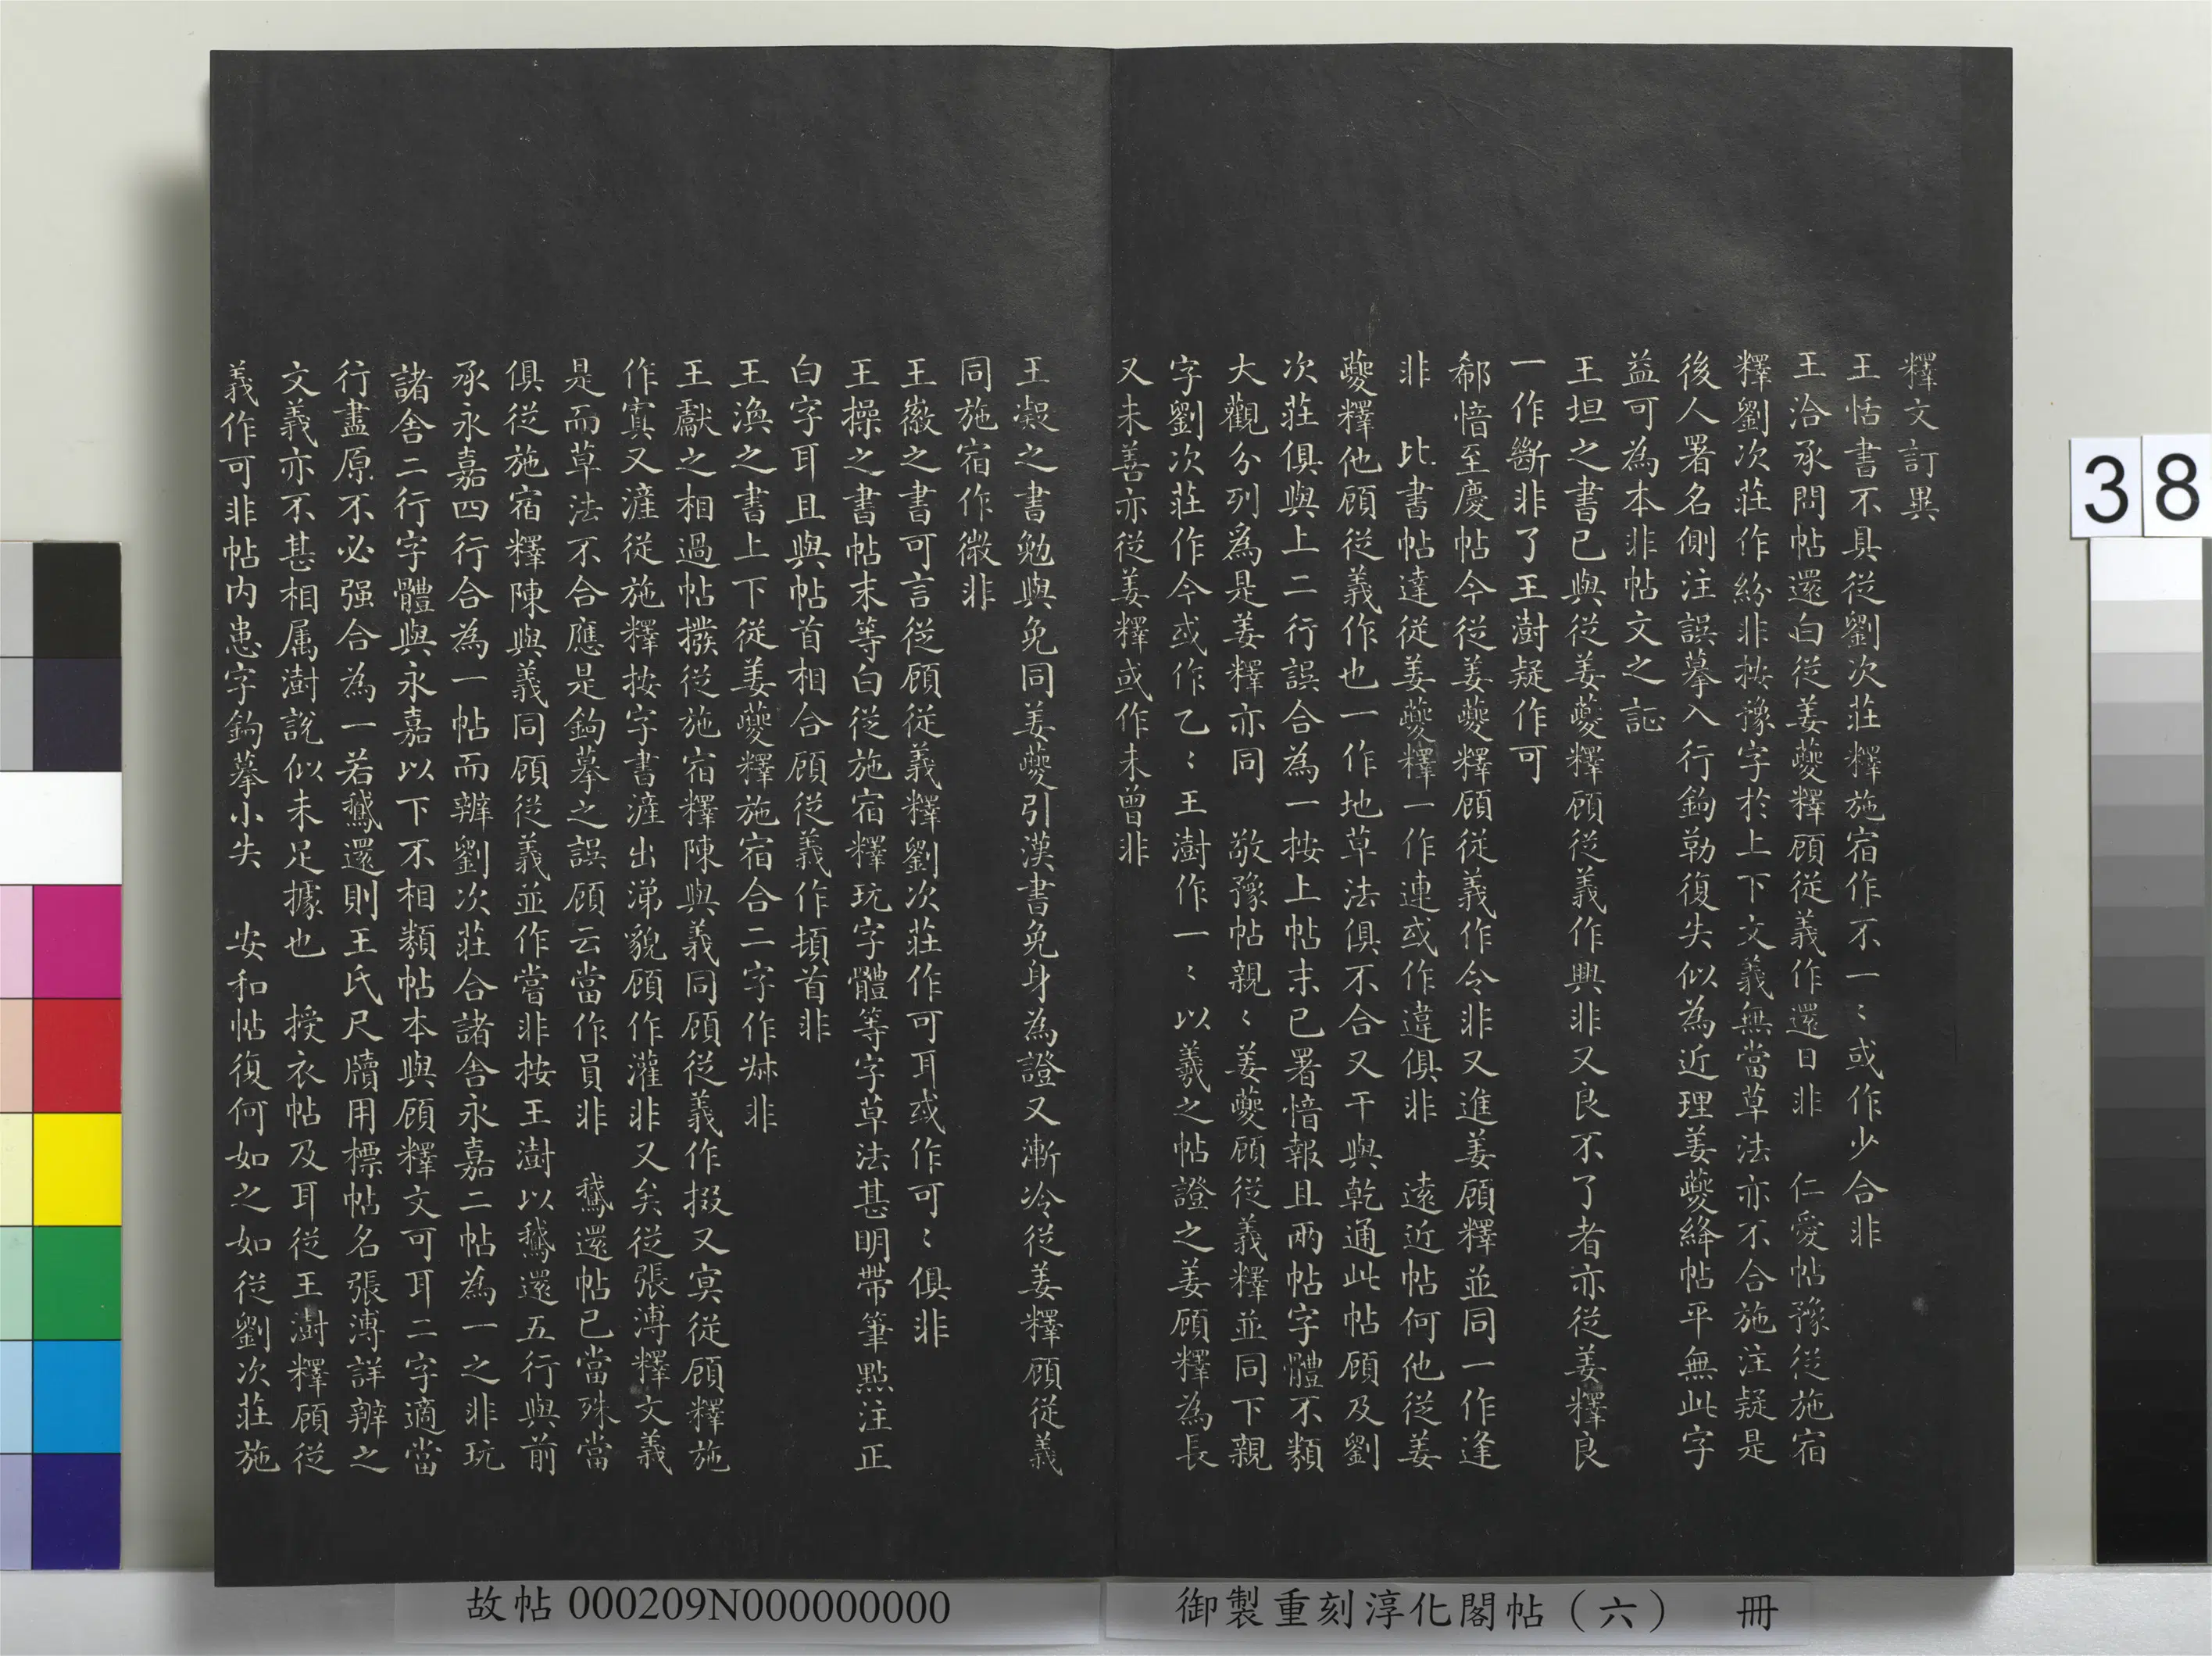 釋文訂異
王恬書不具從劉次莊釋施宿作不一〻或作少合非
王洽承問帖還白從姜夔釋顧從義作還日非 仁愛帖豫從施宿
釋劉次莊作紛非按豫字於上下文義無當草法亦不合施注疑是
後人署名側注誤摹入行鉤勒復失似為近理姜夔絳帖平無此字
益可為本非帖文之証
王坦之書已與從姜夔釋顧從義作興非又良不了者亦從姜釋良
一作斷非了王澍疑作可
郗愔至慶帖今從姜夔釋顧從義作令非又進姜顧釋並同一作逢
非 比書帖達從姜夔釋一作連或作違俱非 遠近帖何他從姜
夔釋他顧從義作也一作地草法俱不合又干與乾通此帖顧及劉
次莊俱與上二行誤合為一按上帖末已署愔報且兩帖字體不類
大觀分列為是姜釋亦同 敬豫帖親〻姜夔顧從義釋並同下親
字劉次莊作今或作乙〻王澍作一〻以羲之帖證之姜顧釋為長
又未善亦從姜釋或作未曾非
王凝之書勉與免同姜夔引漢書免身為證又漸冷從姜釋顧從義
同施宿作微非
王徽之書可言從顧從義釋劉次莊作可耳或作可〻俱非
王操之書帖末等白從施宿釋玩字體等字草法甚明帶筆點注正
白字耳且與帖首相合顧從義作頓首非
王渙之書上下從姜夔釋施宿合二字作㷂非
王獻之相過帖撥從施宿釋陳與義同顧從義作掇又寘從顧釋施
作寘又漼從施釋按字書漼出涕貌顧作灌非又矣從張溥釋文義
是而草法不合應是鉤摹之誤顧云當作員非 鵞還帖已當殊當
俱從施宿釋陳與義同顧從義並作嘗非按王澍以鵞還五行與前
承永嘉四行合為一帖而辨劉次莊合諸舍永嘉二帖為一之非玩
諸舍二行字體與永嘉以下不相類帖本與顧釋文可耳二字適當
行盡原不必强合為一若鵞還則王氏尺牘用標帖名張溥詳辨之
文義亦不甚相属澍說似未足據也 授衣帖及耳從王澍釋顧從
義作可非帖内患字鉤摹小失 安和帖復何如之如從劉次莊施
38
故帖 000209N000000000
御製重刻淳化閣帖（六） 冊